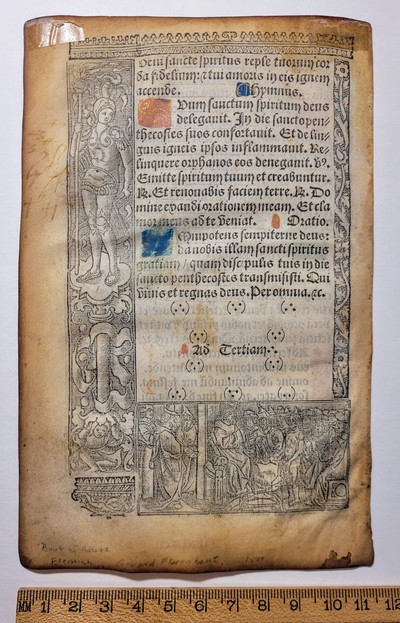 Ueni sancte spiritus reple tuorum cor
da fidelium: ⁊ tui amoris in eis ignem
accende. Hymnus.
Num sanctum spiritum deus
delegauit. In die sancto pen-
thecostes suos confortauit. Et de lin-
guis igneis ipsos inflammauit. Re-
linquere orphanos eos denegauit. ℣.
Emitte spiritum tuum et creabuntur.
℟. Et renouabis faciem terre. ℟. Do
mine exaudi orationem meam. Et cla
mor meus ad te veniat. Oratio.
Omnipotens sempiterne deus:
da nobis illam sancti spiritus
gratiam / quam discipulis tuis in die
sancto penthecostes transmisisti. Qui
viuis et regnas deus. Per omnia. ⁊c.
Ad Tertiam.
Book of Hours
Flemish
MM 1 2 3 4 5 6 7 8 9 10 11 12 13